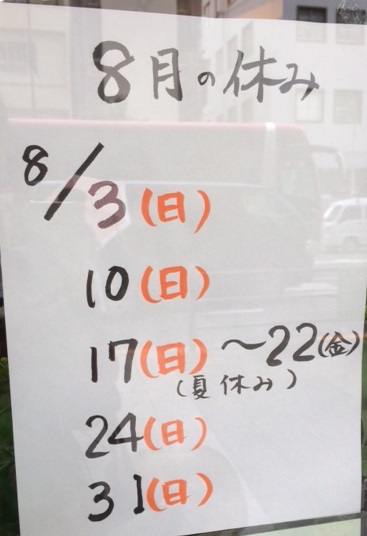 8月の休み
8/3(日)
10(日)
17(日)～22(金)
(夏休み)
24(日)
31(日)